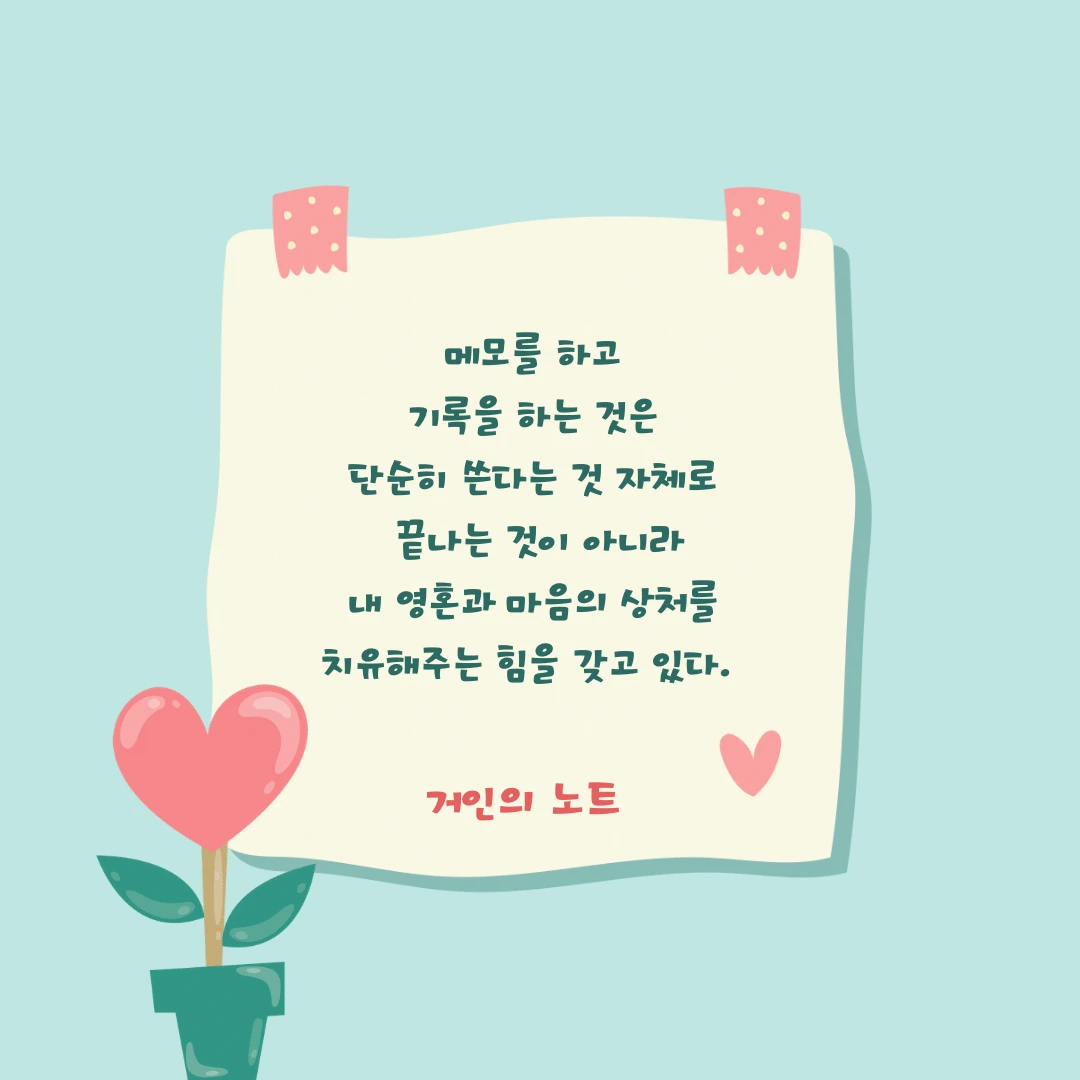 메모를 하고
기록을 하는 것은
단순히 쓴다는 것 자체로
끝나는 것이 아니라
내 영혼과 마음의 상처를
치유해주는 힘을 갖고 있다.
거인의 노트